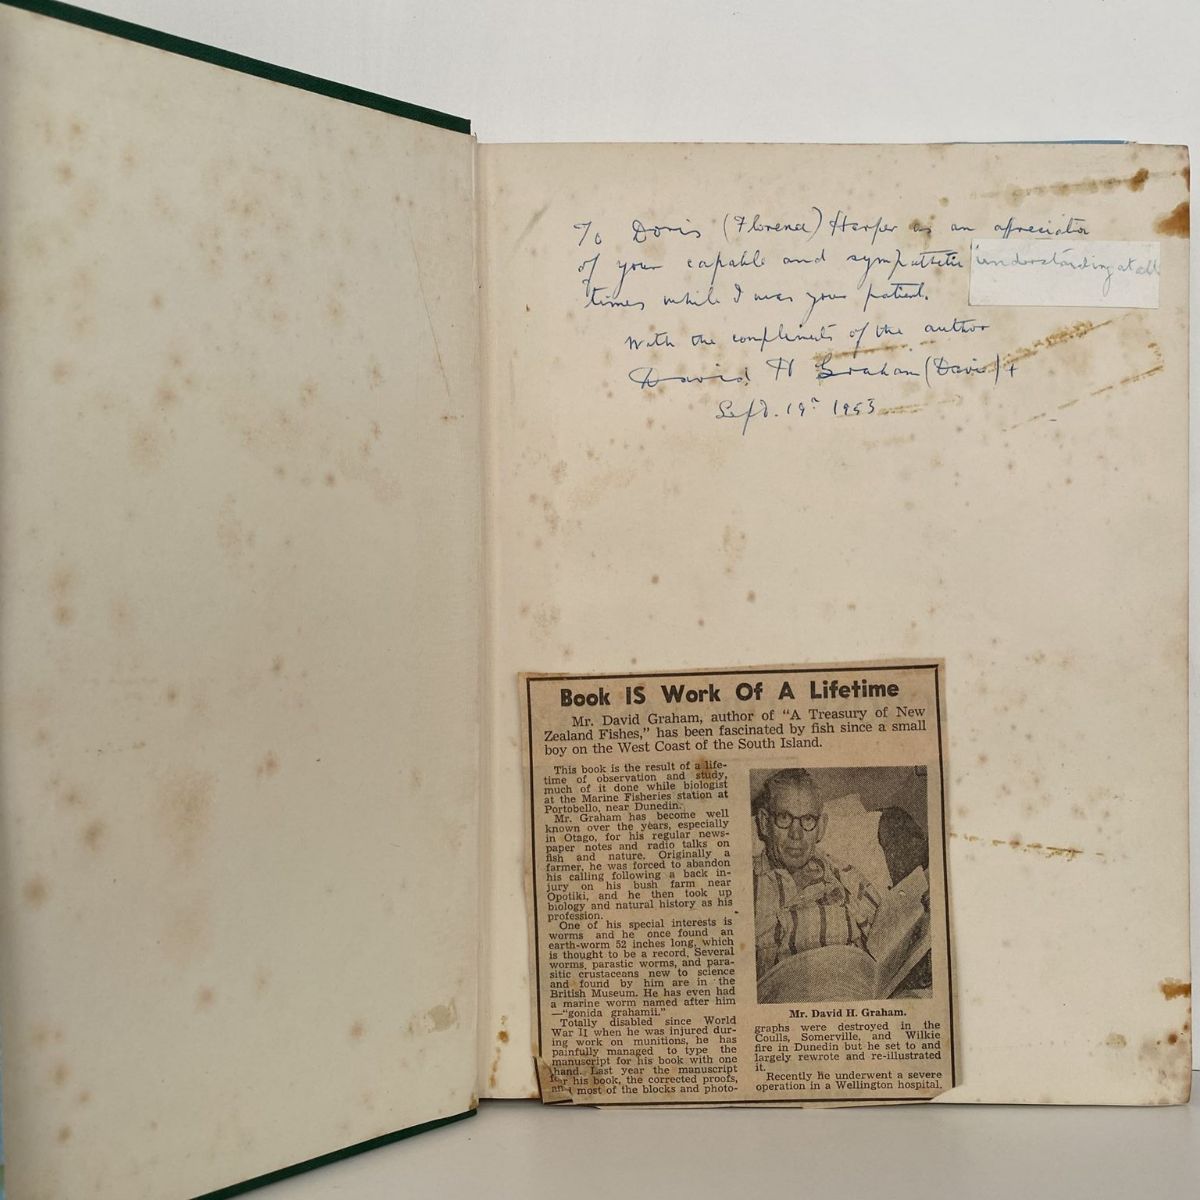 To Doris (Florence) Harper as an appreciation
of your capable and sympathetic understanding at all
times while I was your patient.
With the compliments of the author
David H Graham (Davie) +
Sept. 19th 1953
Book IS Work Of A Lifetime
Mr. David Graham, author of "A Treasury of New
Zealand Fishes," has been fascinated by fish since a small
boy on the West Coast of the South Island.
This book is the result of a life-
time of observation and study,
much of it done while biologist
at the Marine Fisheries station at
Portobello, near Dunedin.
Mr. Graham has become well
known over the years, especially
in Otago, for his regular news-
paper notes and radio talks on
fish and nature. Originally a
farmer, he was forced to abandon
his calling following a back in-
jury on his bush farm near
Opotiki, and he then took up
biology and natural history as his
profession.
One of his special interests is
worms and he once found an
earth-worm 52 inches long, which
is thought to be a record. Several
worms, parastic worms, and para-
sitic crustaceans new to science
and found by him are in the
British Museum. He has even had
a marine worm named after him
—"gonida grahamii."
Totally disabled since World
War II when he was injured dur-
ing work on munitions, he has
painfully managed to type the
manuscript for his book with one
hand. Last year the manuscript
for his book, the corrected proofs,
and most of the blocks and photo-
Mr. David H. Graham.
graphs were destroyed in the
Coulls, Somerville, and Wilkie
fire in Dunedin but he set to and
largely rewrote and re-illustrated
it.
Recently he underwent a severe
operation in a Wellington hospital.